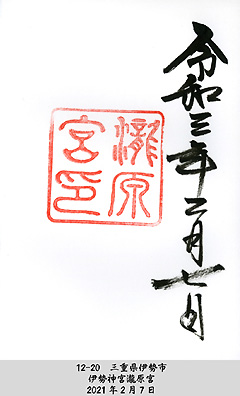 令和三年二月七日
瀧原
宮印
12-20 三重県伊勢市
伊勢神宮瀧原宮
2021年2月7日